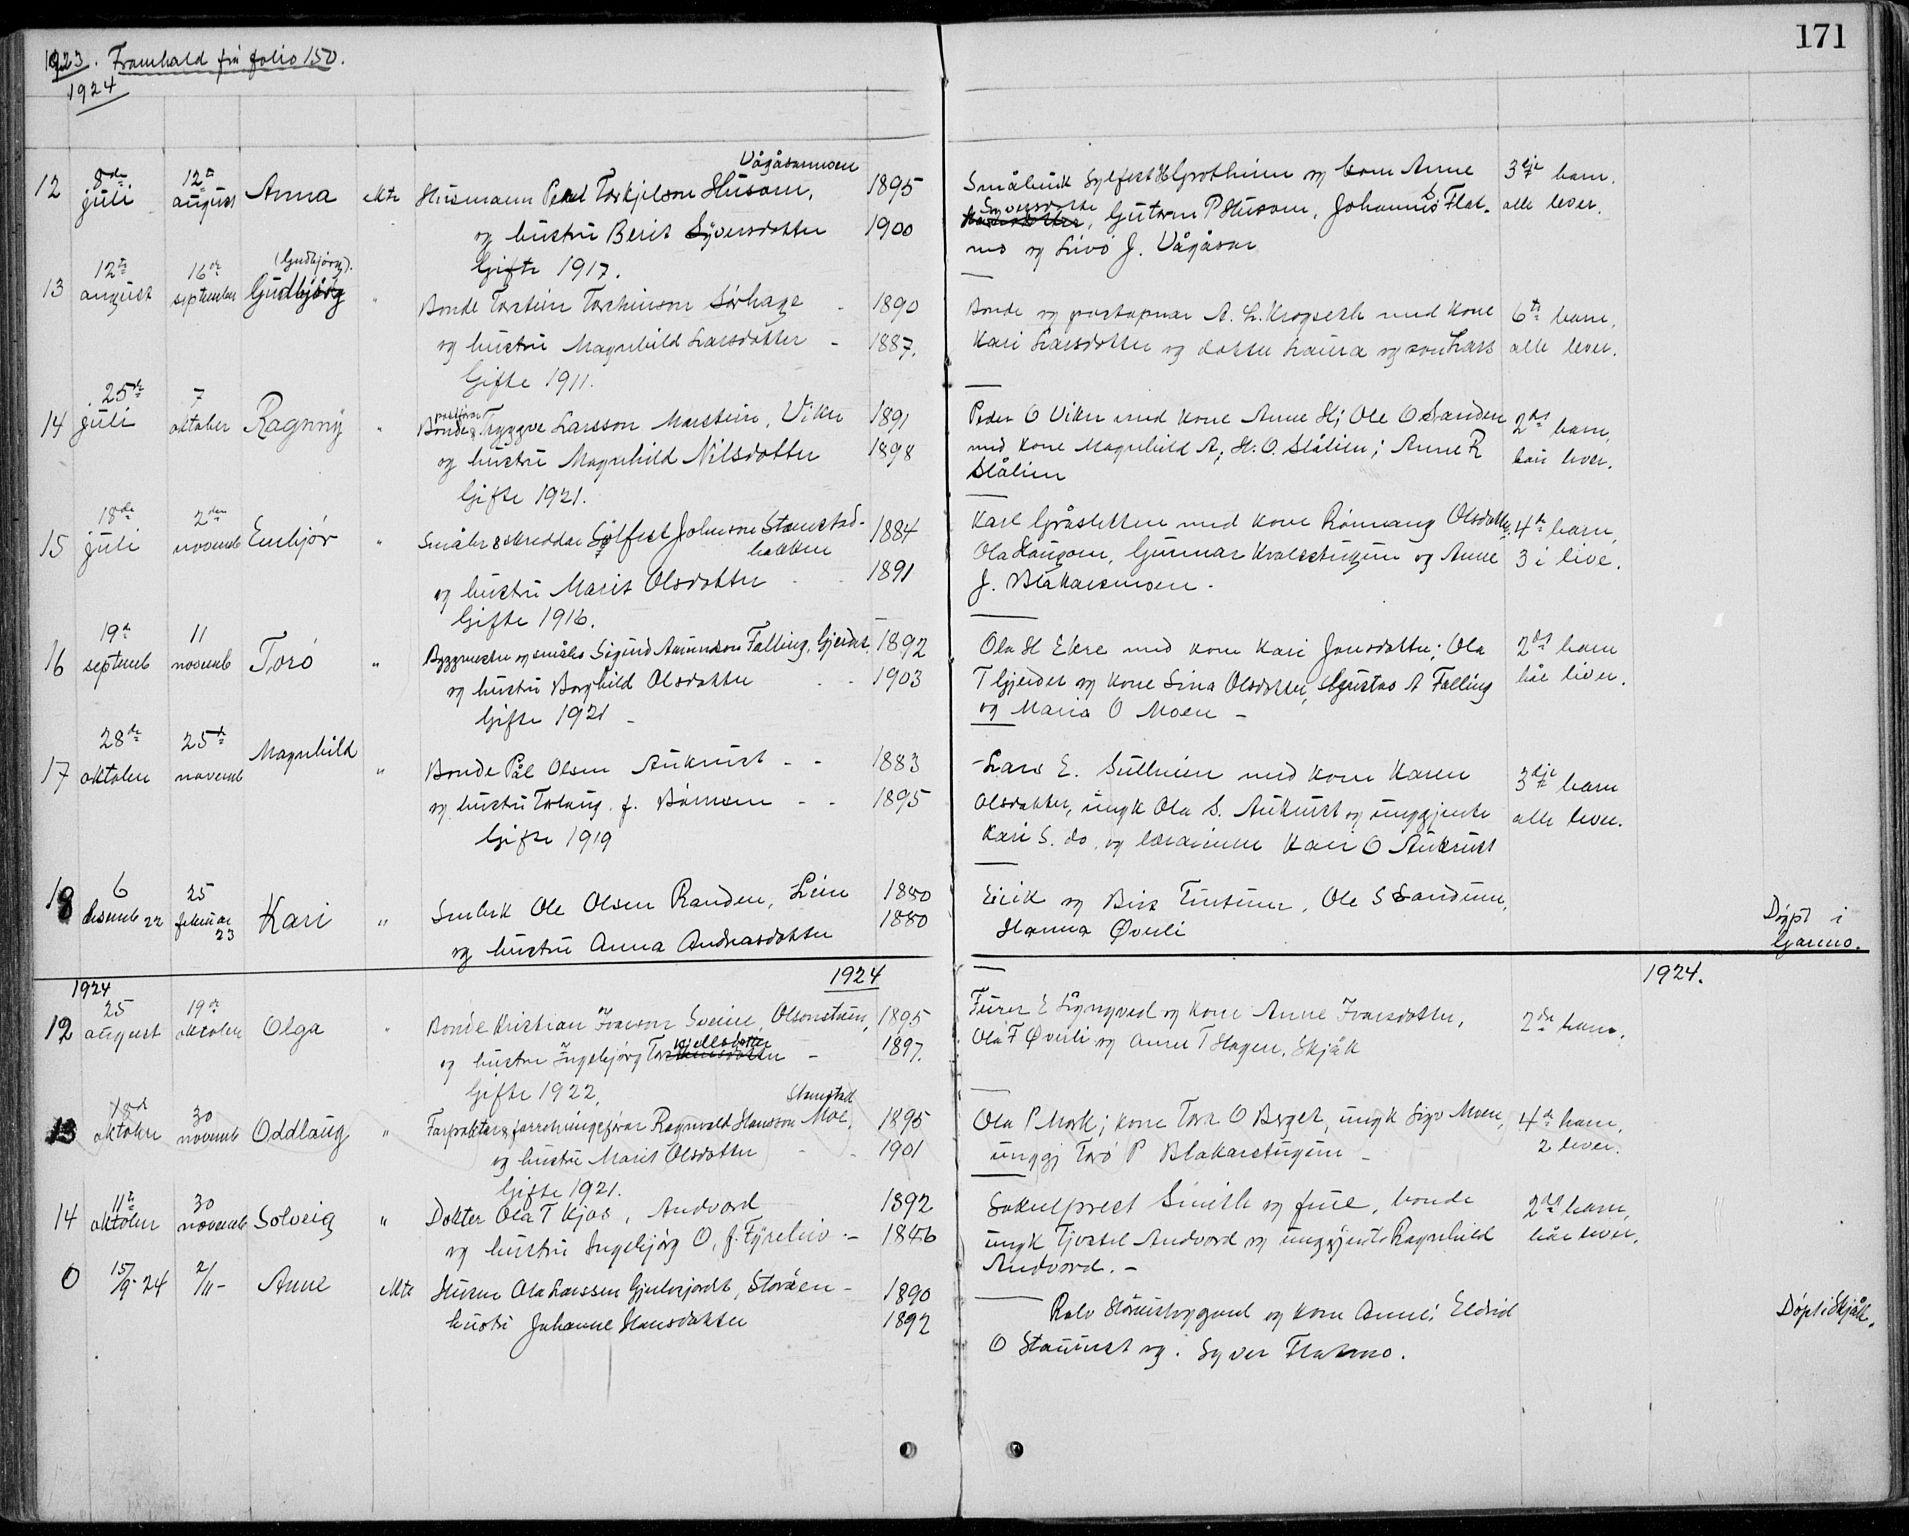 171
1923. Framhald frå folio 150.
1924
12 8de juli 12te august Anna ekte Husmann Torkjelson Husom, Vågåsarmoen 1895
og hustru Berit Syversdotter 1900
Gifte 1917.
Småbruk Sylfest H Grotheim og kone Anne
Syversdotter, Guttorm P Husom, Johannes Flat-
mo og Livø J. Vågåsar
3dje barn.
alle lever.
13 12te august 16de september Gudbjørg (Gudbjørg). " Bonde Torstein Torsteinson Sørhage - 1890
og hustru Magnhild Larsdotter - 1887.
Gifte 1911.
Bonde og postopnar A. L. Krogseth med kone
Kari Larsdotter og dotter Laura og son Lars
6te barn,
alle lever.
14 25de juli 7 oktober Ragnny " Bonde Tryggve Larsson Marstein, Viken 1891
og hustru Magnhild Nilsdotter 1898
Gifte 1921.
Peder O Viken med kone Anne H; Ole O Sanden
med kone Magnhild A; H. O. Slålien; Anne R
Slålien
2det barn,
båe lever.
15 18de juli 2den novemb Embjør " Småbr & skreddar Sylfest Johnson Stamstad-
bakken 1884
og hustru Marit Olsdotter - - 1891
Gifte 1916.
Karl Gråsletten med kone Rønnaug Olsdotter,
Ola Haugom, Gunnar Kvalesstugun og Anne
J. Blakarsmoen.
4de barn,
3 i live.
16 19de septemb 11 novemb Torø " Byggmester og småbr Sigurd Amundson Falling, Gjeidet, 1892
og hustru Borghild Olsdotter - - 1903
Gifte 1921 -
Ola H Ekre med kone Kari Jonsdotter; Ola
T Gjeidet og kone Sina Olsdotter, Gustav A Falling
og Maria O Moen -
2det barn
båe liver.
17 28de oktober 25de novemb Magnhild " Bonde Pål Olsen Aukrust - - 1883
og hustru Torlaug f. - - 1895
Gifte 1919
Lars E. Sulheim med kone Karen
Olsdotter, ungk Ola S. Aukrust og unggjente
Kari S. do, og lærarinne Kari O Aukrust
3dje barn
alle lever.
18 6 desemb 22 25 februar 23 Kari " Småbrk Ole Olsen Randen, Leine 1880
og hustru Anna Andreasdotter 1880
Eirik og Brit Tustene, Ole S Sandum,
Hanna Øverli
Døpt i
Garmo.
1924 1924 1924.
12 25 august 19de oktober Olga " Bonde Kristian Ivarson Sveine, Olsonstuen, 1895
og hustru Ingebjørg Torkjellsdotter - 1897.
Gifte 1922,
E Syngved og kone Anne Ivarsdotter,
Ola F Øverli og Anne T Hagen, Skjåk
2de barn,
13 oktober 30 novemb Oddlaug " Forpaktar & forretningsførar Ragnvald Hansson Moe, Stamstad 1895
og hustru Marit Olsdotter - - 1901
Gifte 1921.
Ola P Mork; kone Tora O Berget, ungk Sigv Moen,
unggj Torø P Blakarstugun -
4de barn,
2 lever.
14 11te oktober 30 novemb Solveig " Dokter Ola T Kjos, Andvord 1892
og hustru Ingebjørg O, f. Fyreliv - 1846
Soknelprest Smith og frue, bonde
ungk Tjostel Andvord og unggjente Ragnhild
Andvord. -
2det barn,
båe lever.
0 15/9-24 2/11- Anne ekte Husm Ola Larssen Gjeilesjordet, Storøen - 1890
hustru Johanne Hansdotter 1892
Rolv Storsteinhyggen og kone Anne; Eldrid
O Staurust og Syver Flatmo.
Døpt i Skjåk.